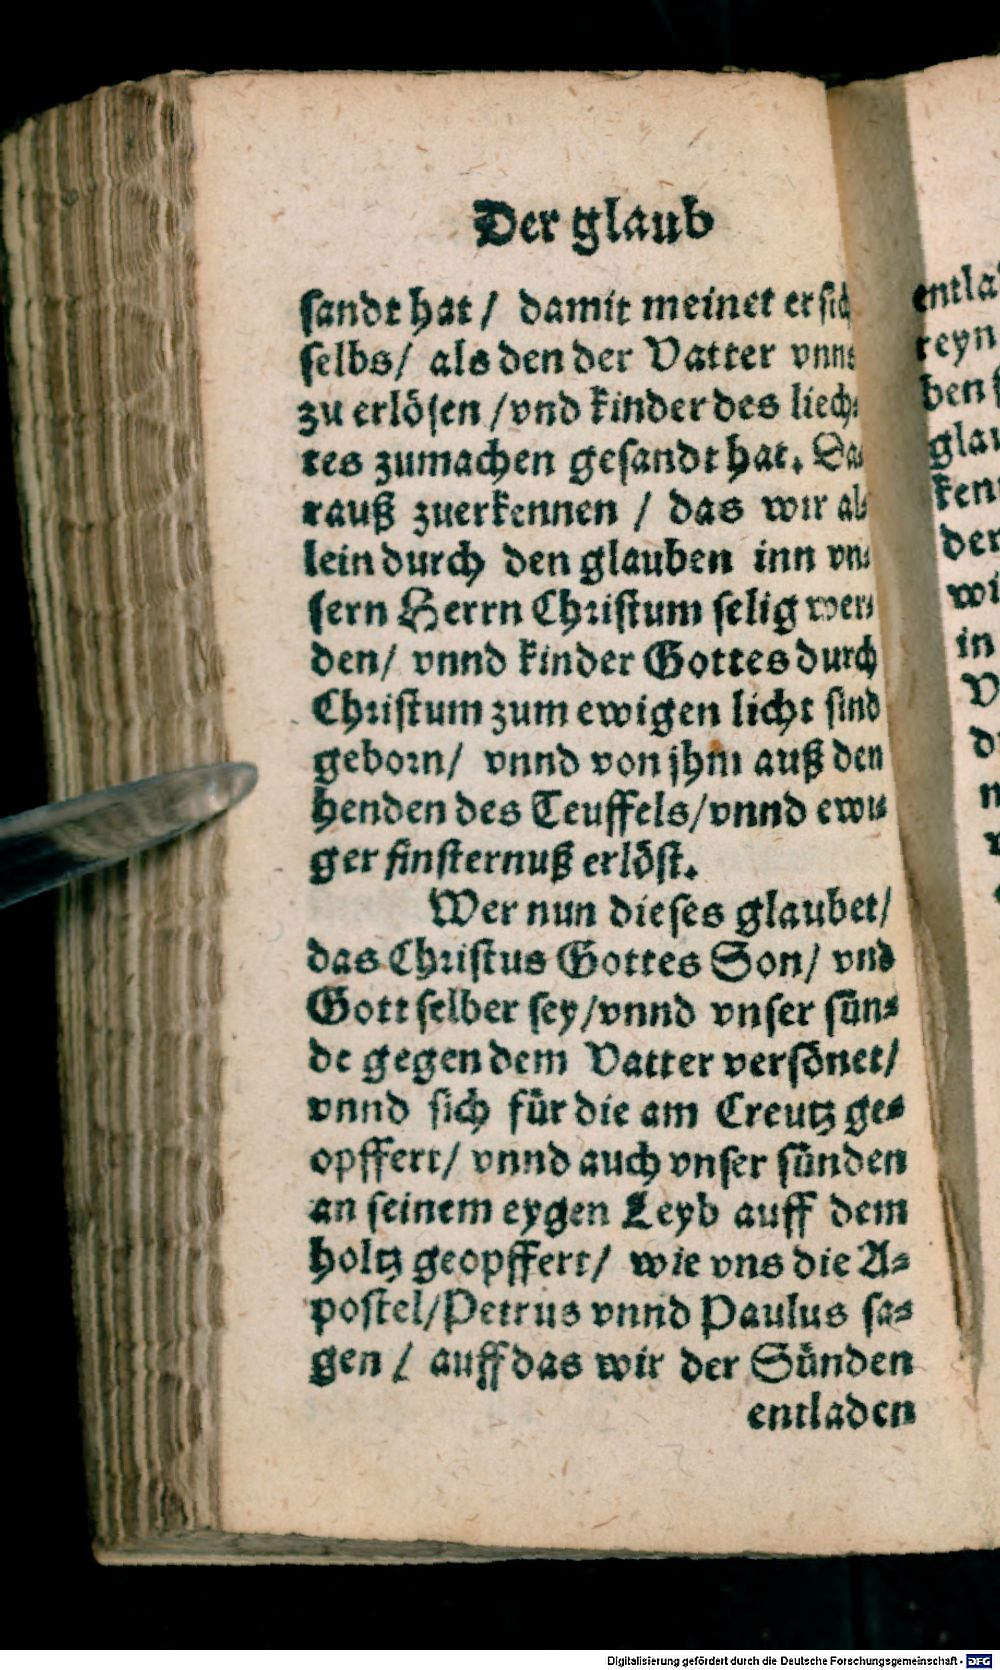 Der glaub
sandt hat / damit meinet er sich
selbs/ als den der Vatter vnns
zu erlösen /vnd kinder des liech⸗
tes zumachen gesandt hat. Da⸗
rauß zuerkennen / das wir al⸗
lein durch den glauben inn vn⸗
sern Herrn Christum selig wer⸗
den/ vnnd kinder Gottes durch
Christum zum ewigen licht sind
geborn/ vnnd von jhm auß den
henden des Teuffels/vnnd ewi⸗
ger finsternuß erlöst.
Wer nun dieses glaubet/
das Christus Gottes Son/ vnd
Gott selber sey/vnnd vnser sün⸗
de gegen dem Vatter versönet/
vnnd sich für die am Creutz ge⸗
opffert/ vnnd auch vnser sünden
an seinem eygen Leyb auff dem
holtz geopffert/ wie vns die A⸗
postel/Petrus vnnd Paulus sa⸗
gen / auff das wir der Sünden
entladen
entla
reyn
ben
glau
ken
der
wi
in
Digitalisierung gefördert durch die Deutsche Forschungsgemeinschaft - DFG